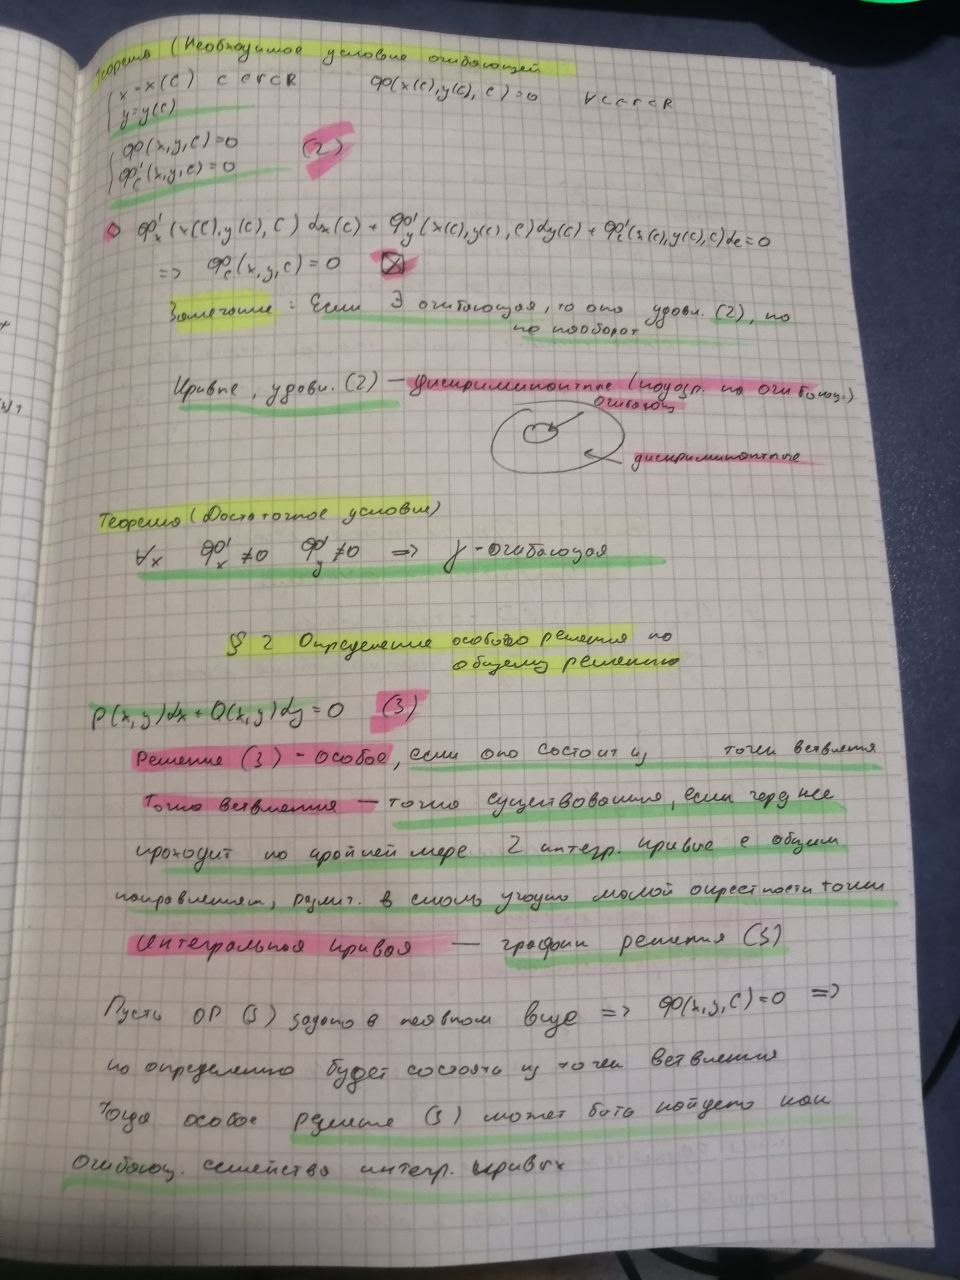 Теорема (Необходимое условие огибающей
{ x = x(C) C ∈ Γ ⊂ R Φ(x(C), y(C), C) = 0 ∀ C ∈ Γ ⊂ R
y = y(C)
{ Φ(x,y,C) = 0 (2)
Φ'_C(x,y,C) = 0
Φ'_x (x(C), y(C), C) dx(C) + Φ'_y (x(C), y(C), C) dy(C) + Φ'_C (x(C), y(C), C) dC = 0
=> Φ'_C (x,y,C) = 0 ☒
Замечание: Если ∃ огибающая, то она удовл. (2), но
не наоборот
Кривые, удовл. (2) — дискриминантные (подозр. на огибающ.)
огибающ
дискриминантные
Теорема (Достаточное условие)
∀x Φ'_x ≠ 0 Φ'_y ≠ 0 => γ - огибающая
§ 2 Определение особого решения по
общему решению
P(x,y)dx + Q(x,y)dy = 0 (3)
Решение (3) - особое, если оно состоит из точек ветвления
Точка ветвления — точка существования, если через нее
проходит по крайней мере 2 интегр. кривые с общим
направлением, различ. в сколь угодно малой окрестности точки
Интегральная кривая — график решения (3)
Пусть ОР (3) задано в неявном виде => Φ(x,y,C) = 0 =>
по определению будет состоять из точек ветвления
Тогда особое решение (3) может быть найдено как
огибающ. семейства интегр. кривых